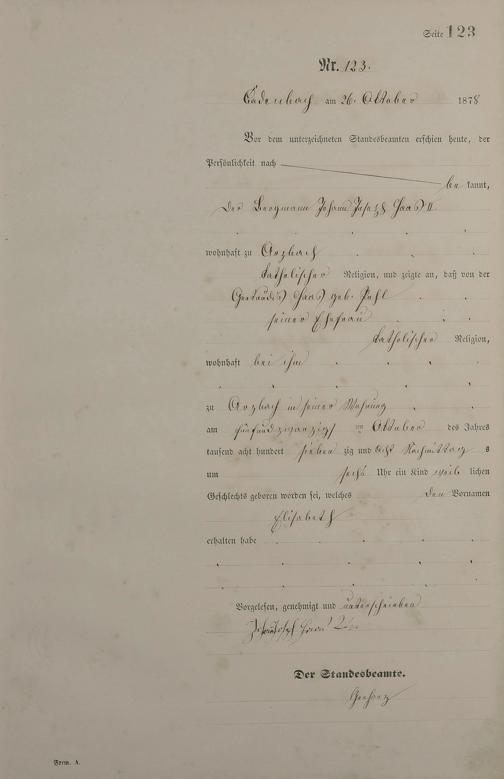 Seite 123
Nr. 123.
Cadenbach am 26. Oktober 1878
Vor dem unterzeichneten Standesbeamten erschien heute, der
Persönlichkeit nach
be kannt,
der Bergmann Johann Joseph Haas II
wohnhaft zu Arzbach
katholischer Religion, und zeigte an, daß von der
Gertrudis Haas geb. Fehl
seiner Ehefrau
katholischer Religion,
wohnhaft bei ihm
zu Arzbach in seiner Wohnung
am fünfundzwanzigs ten Oktober des Jahres
tausend acht hundert sieben zig und acht Nachmittag s
um sechs Uhr ein Kind weib lichen
Geschlechts geboren worden sei, welches den Vornamen
Elisabeth
erhalten habe
Vorgelesen, genehmigt und unterschrieben
Joseph Haas
Der Standesbeamte.
Form. A.